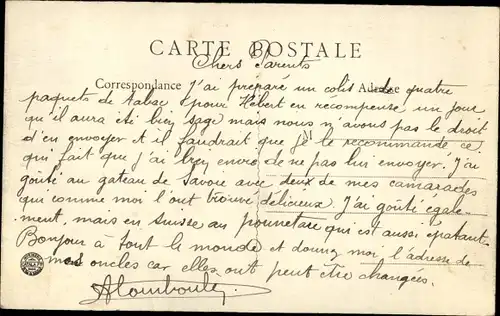 CARTE POSTALE
Chers Parents
Correspondance J'ai préparé un colis Adresse de quatre
paquets de tabac pour Hébert en récompense un jour
qu'il aura été bien sage mais nous n'avons pas le droit
d'en envoyer et il faudrait que je le recommande ce
qui fait que j'ai bien envie de ne pas lui envoyer. J'ai
goûté au gateau de Savoie avec deux de mes camarades
qui comme moi l'ont trouvé délicieux. J'ai goûté égale-
ment, mais en Suisse au qui est aussi épatant.
Bonjour à tout le monde et donnez moi l'adresse de
mes oncles car elles ont peut être changées.